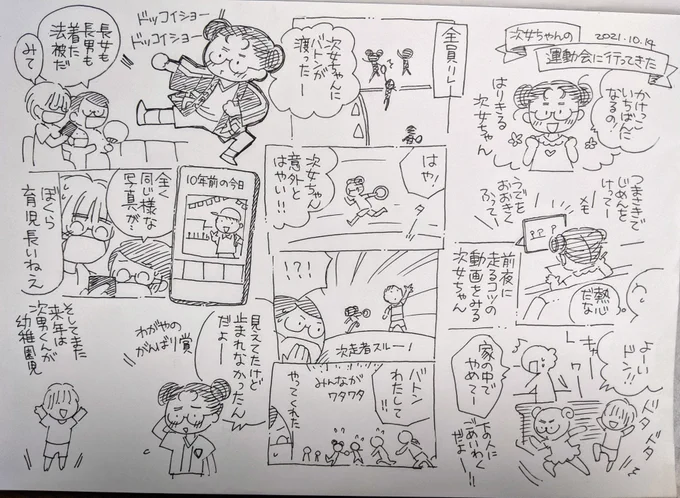 次女ちゃんの
運動会に行ってきた
2021.10.14
かけっこ
いちばんに
なるの!
はりきる
次女ちゃん
つまさきで
じめんを
けってー
うでを
おおきく
ふってー
メモ
前夜に
走るコツの
動画をみる
次女ちゃん
熱心
だな
よーい
ドン!!
キャー
ドタドタ
家の中で
やめてー
下の人に
ごめいわく
だよー!!
全員リレー
次女ちゃんに
バトンが
渡ったー
はやッ
次女ちゃん
意外と
はやい!!
!?!
次走者スルー!
バトン
わたして!!
みんなが
ワタワタ
やってくれた
ドッコイショー
ドッコイショー
長女も
長男も
着た
法被だ
みて
10年前の今日
全く
同じ様な
写真が…
ぼくら
育児長いねえ
見えてたけど
止まれなかったん
だよー
わがやの
がんばり賞
そしてまた
来年は
次男くんが
幼稚園児